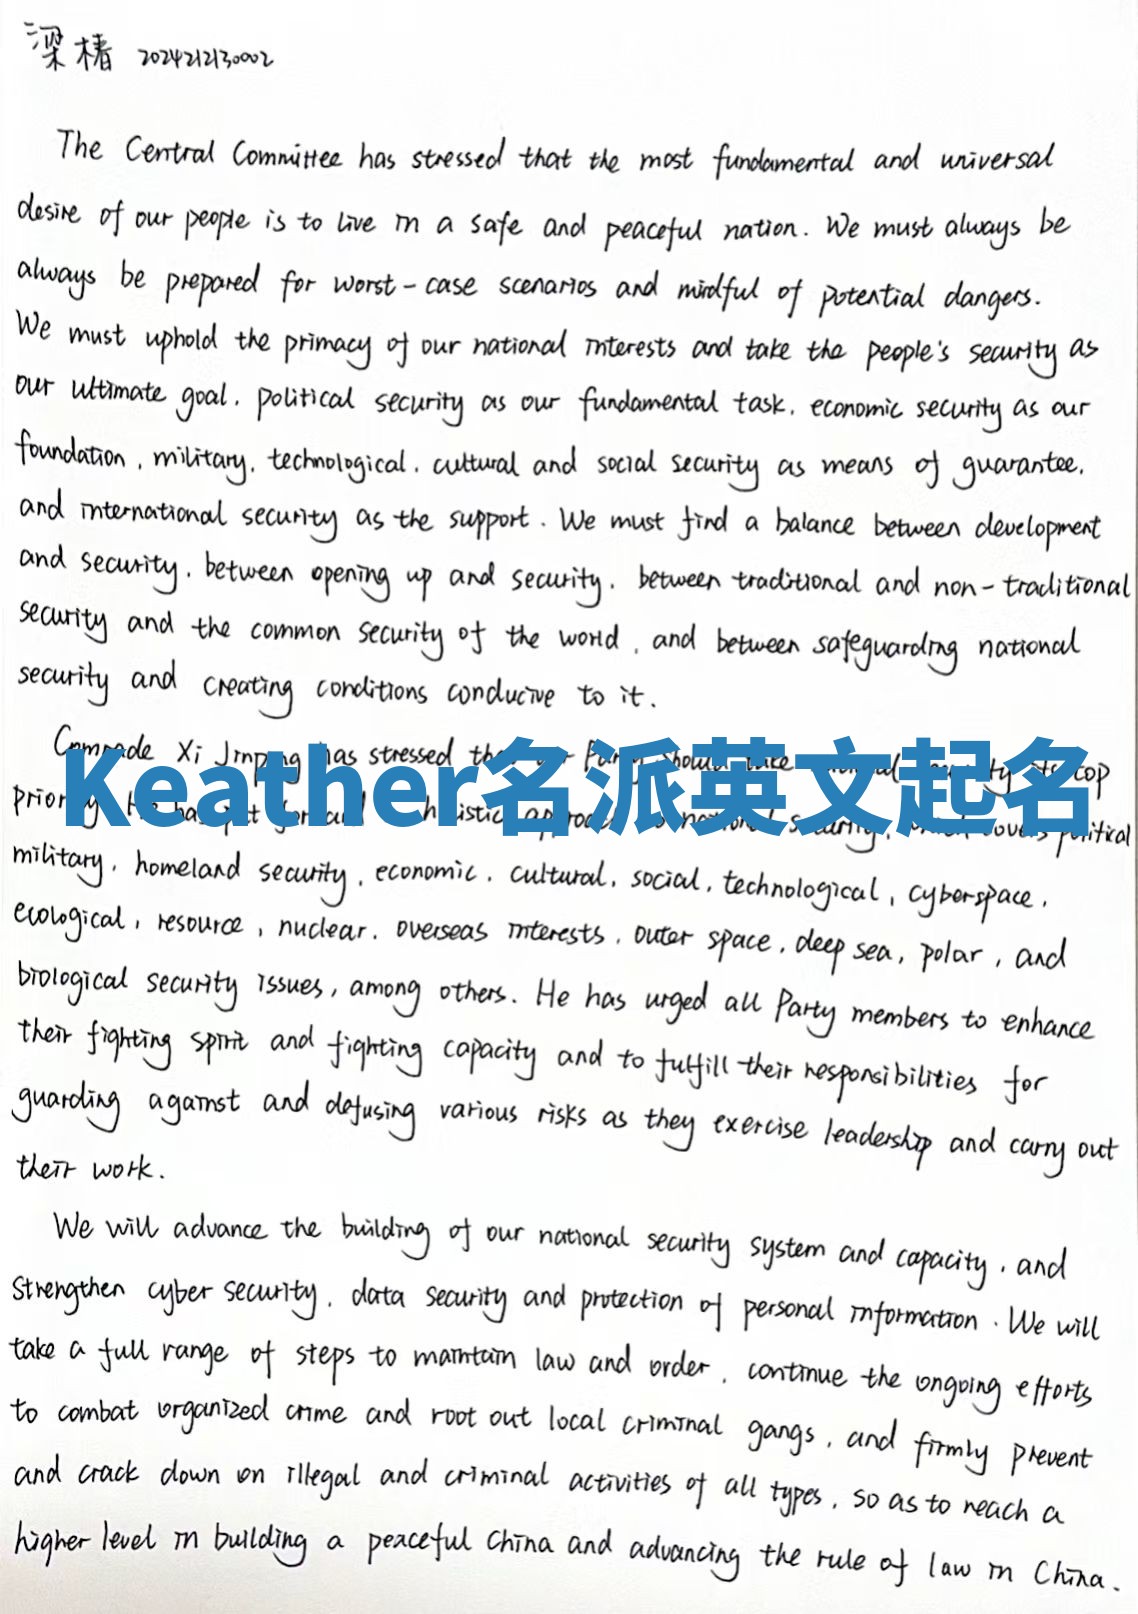 梁椿 2024212130002
The Central Committee has stressed that the most fundamental and universal
desire of our people is to live in a safe and peaceful nation. We must always be
always be prepared for worst-case scenarios and mindful of potential dangers.
We must uphold the primacy of our national interests and take the people's security as
our ultimate goal, political security as our fundamental task, economic security as our
foundation, military, technological, cultural and social security as means of guarantee,
and international security as the support. We must find a balance between development
and security, between opening up and security, between traditional and non-traditional
security and the common security of the world, and between safeguarding national
security and creating conditions conducive to it.
Comrade Xi Jinping has stressed Party top
Keather名派英文起名
political
military, homeland security, economic, cultural, social, technological, cyberspace,
ecological, resource, nuclear, overseas interests, outer space, deep sea, polar, and
biological security issues, among others. He has urged all Party members to enhance
their fighting spirit and fighting capacity and to fulfill their responsibilities for
guarding against and defusing various risks as they exercise leadership and carry out
their work.
We will advance the building of our national security system and capacity, and
strengthen cyber security, data security and protection of personal information. We will
take a full range of steps to maintain law and order, continue the ongoing efforts
to combat organized crime and root out local criminal gangs, and firmly prevent
and crack down on illegal and criminal activities of all types, so as to reach a
higher level in building a peaceful China and advancing the rule of law in China.